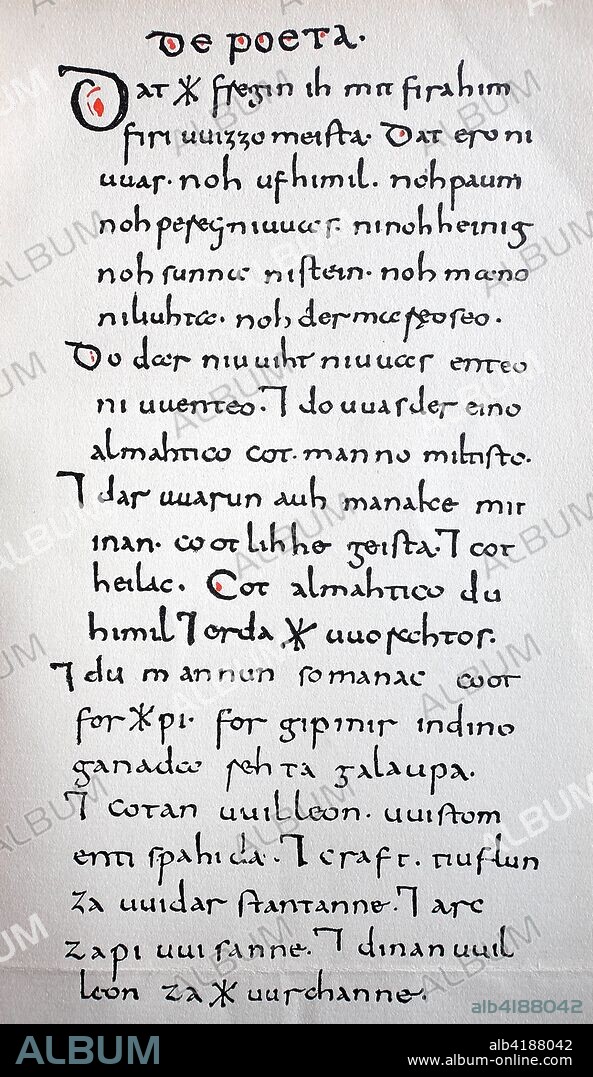 De poeta.
Dat ᚷ fregin ih mit firahim
firi uuizzo meista. Dat ero ni
uuas. noh ufhimil. noh paum
noh pereg niuuas. ninohheinig
noh sunna nistein. noh mano
niliuhta. noh der mareo seo.
Do daar niuuiht niuuas enteo
ni uuenteo. ⁊ do uuas der eino
almahtico cot. manno miltisto.
⁊ dar uuarun auh manake mit
inan. cootlihhe geista. ⁊ cot
heilac. Cot almahtico du
himil ⁊ erda ᚷ uuorahtos.
⁊ du mannun so manac coot
for ᚷ pi. for gipimir indino
ganada rehta galaupa.
⁊ cotan uuilleon. uuistom
enti spahida. ⁊ craft. tiuflun
za uuidar stantanne. ⁊ arc
zapi uuisanne. ⁊ dinan uuil
leon za ᚷ uurchanne.
alb4188042
ALBUM
alb4188042
www.album-online.com